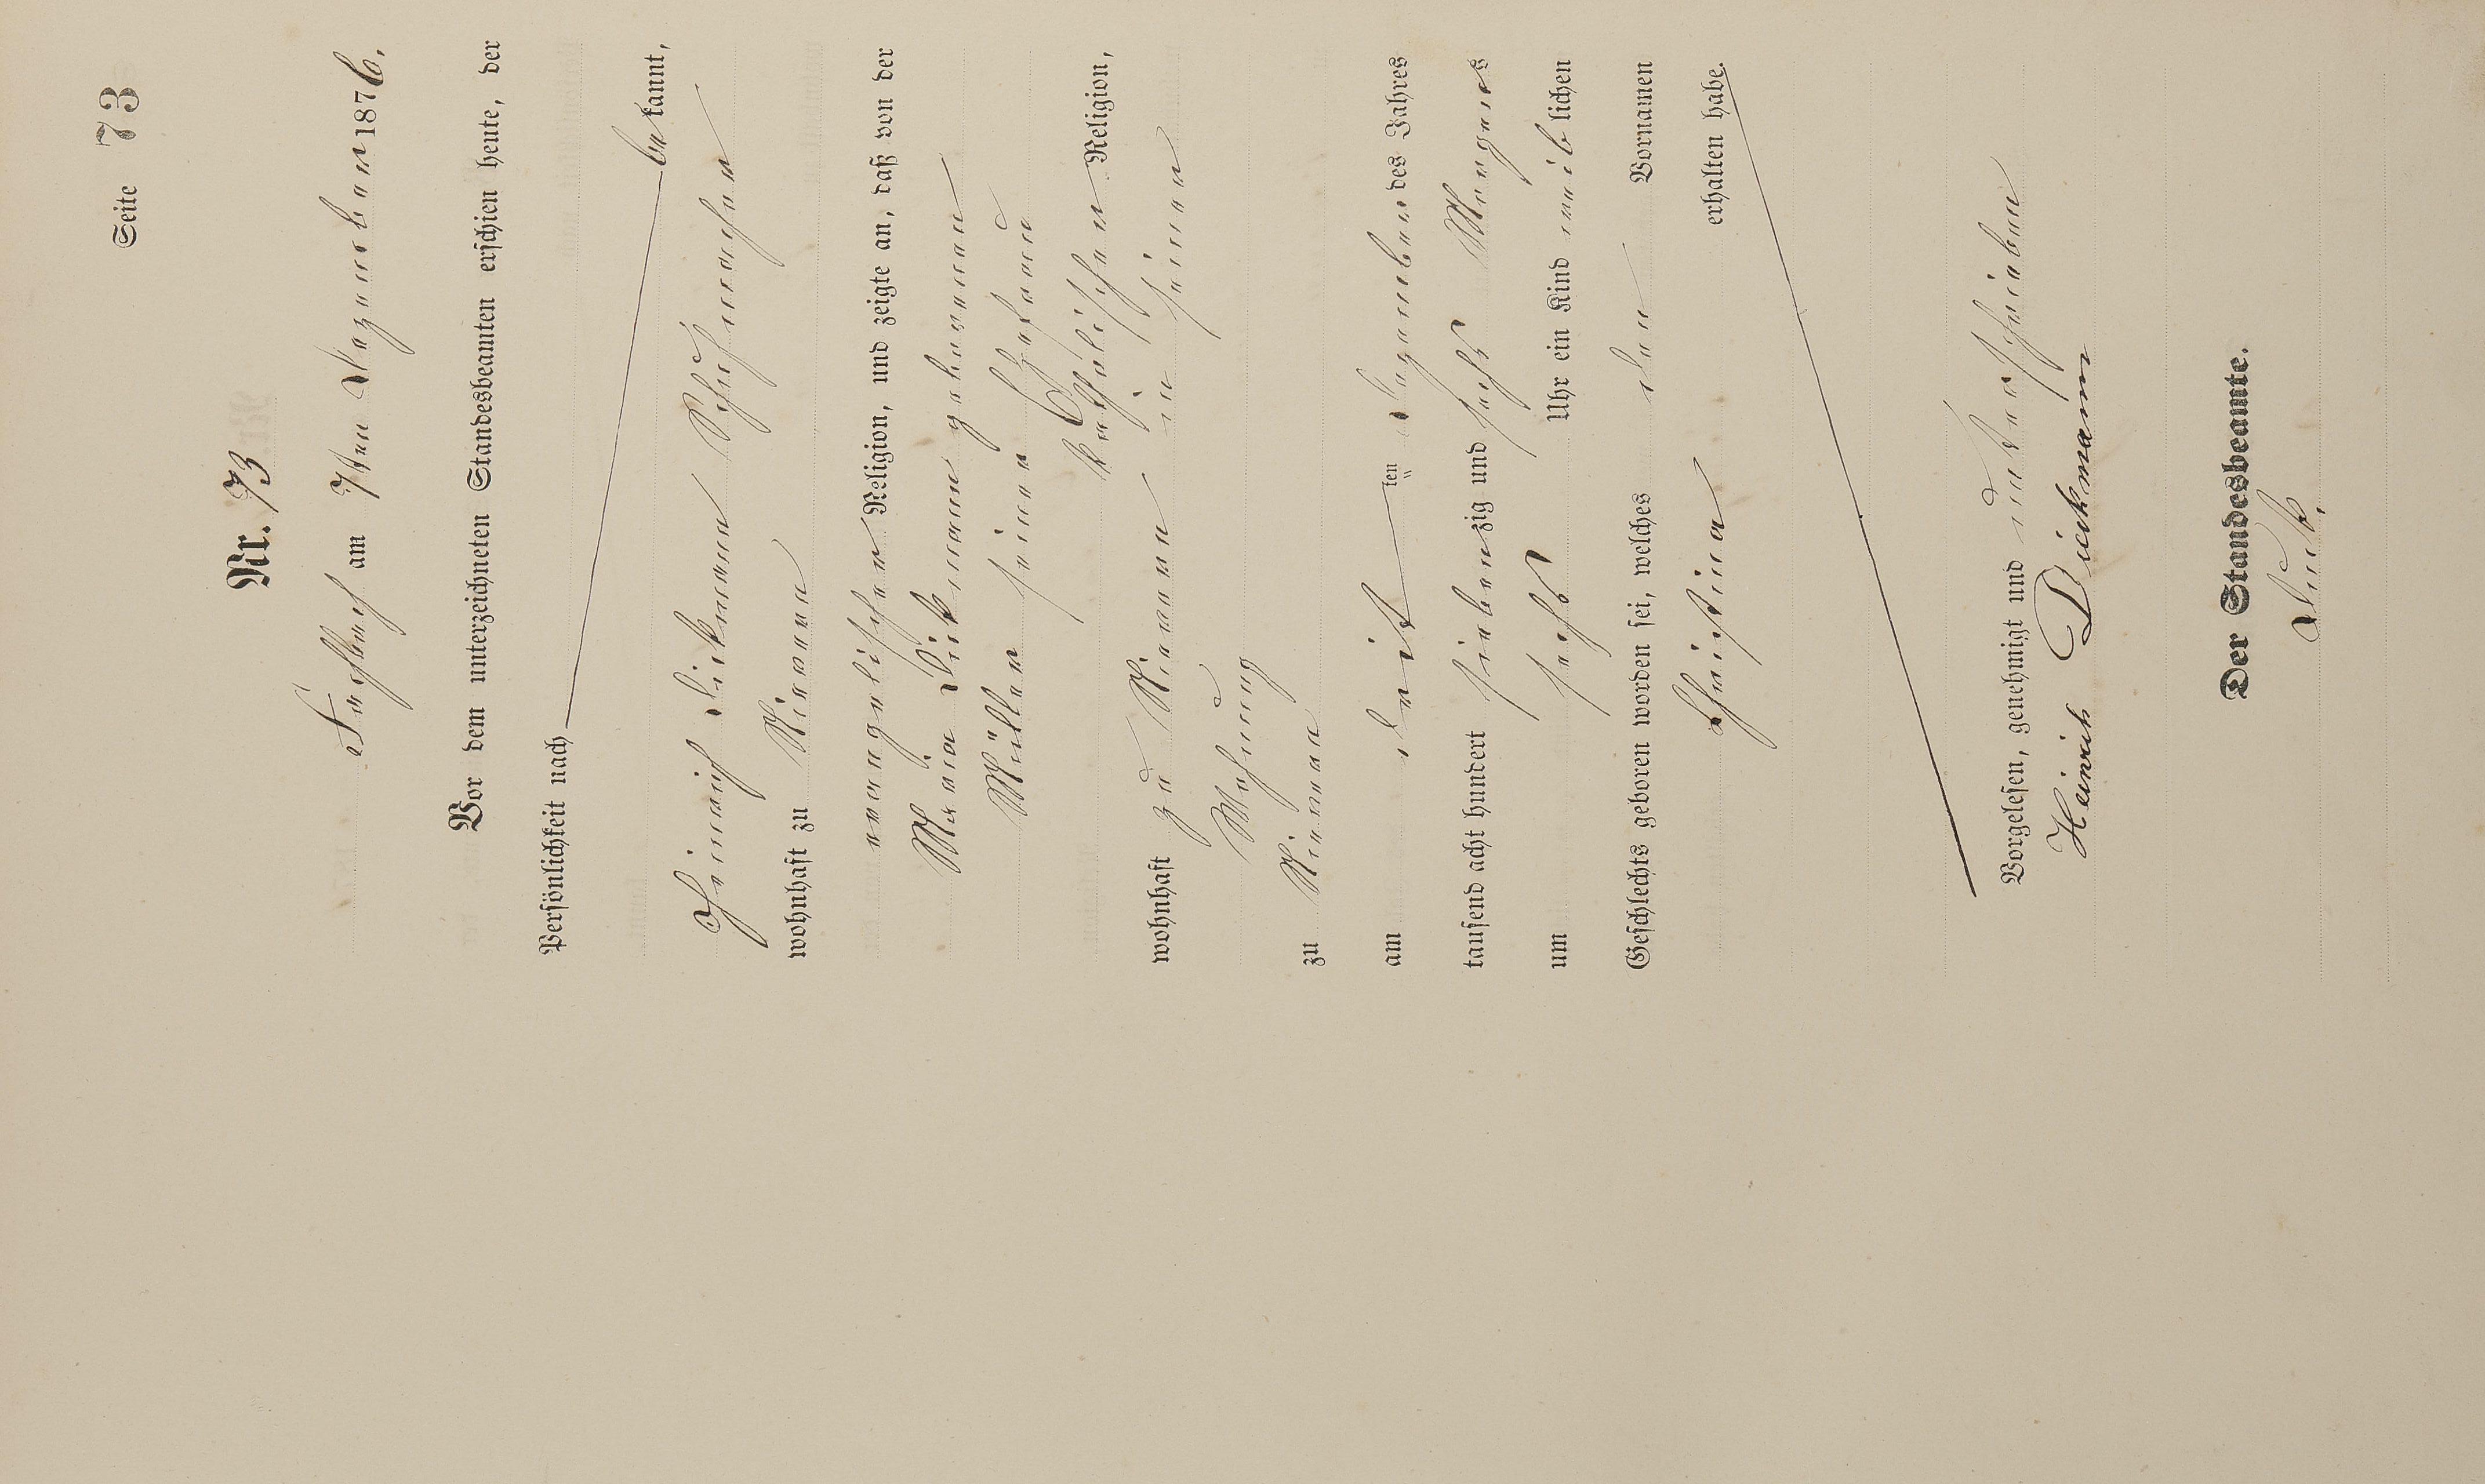 Seite 73
Nr. 73
Fischbach am 7ten Dezember 1876.
Vor dem unterzeichneten Standesbeamten erschien heute, der
Persönlichkeit nach
bekannt,
Heinrich Dickmann Schuhmacher
wohnhaft zu
evangelischer Religion, und zeigte an, daß von der
Maria Dickmann geborenen
Müller seiner Ehefrau
katholischer Religion,
wohnhaft zu in seiner
Wohnung
zu
am drit ten Dezember des Jahres
tausend acht hundert siebenzig und sechs Morgens
um sechs Uhr ein Kind weiblichen
Geschlechts geboren worden sei, welches den Vornamen
Christina
erhalten habe.
Vorgelesen, genehmigt und unterschrieben
Heinrich Dickmann
Der Standesbeamte.